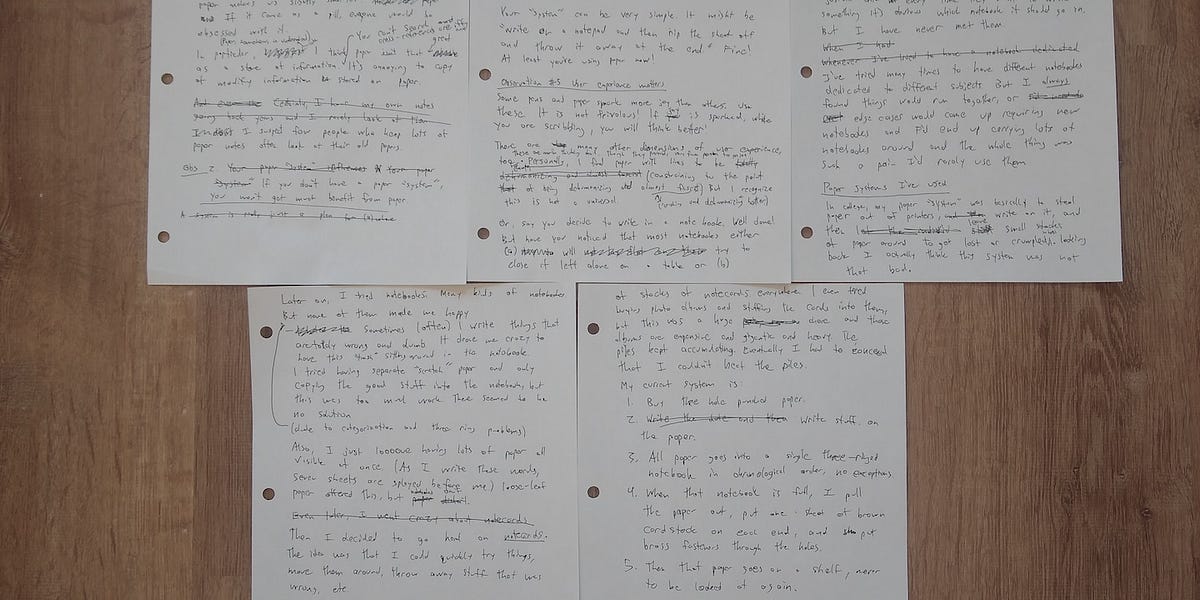 paper makes us slightly
and If it came as a pill, everyone would be
obsessed with it.
You can't search
cross-references are
great
In particular, I think paper isn't that
as a store of information. It's annoying to copy
or modify information stored on paper.
Certainly I have my own notes
going back years and I rarely look at them
Indeed I suspect few people who keep lots of
paper notes often look at their old papers.
Obs 2 Your paper "system" Your paper
"system" If you don't have a paper "system",
you won't get much benefit from paper
A system is really just a plan for
Your "system" can be very simple. It might be
"write on a notepad and then rip the sheet off
and throw it away at the end" Fine!
At least you're using paper now!
Observation #3 User experience matters
Some pens and paper spark more joy than others. Use
these. It is not frivolous! If joy is sparked, while
you are scribbling, you will think better!
There are many other dimensions of user experience,
too. Personally, I find paper with lines to be
(constraining to the point
of being dehumanizing almost fascist) But I recognize
this is not universal.
Or, say you decide to write in a notebook. Well done!
But have you noticed that most notebooks either
(a) will try to
close if left alone on a table or (b)
something it's obvious which notebook it should go in.
But I have never met them.
When I had
Whenever I've tried to have a notebook dedicated
I've tried many times to have different notebooks
dedicated to different subjects. But I always
found things would run together, or
edge cases would come up requiring new
notebooks and I'd end up carrying lots of
notebooks around and the whole thing was
such a pain I'd rarely use them
Paper systems I've used
In college, my paper "system" was basically to steal
paper out of printers, write on it, and
then leave small stacks
of paper around to get lost or crumpled. Looking
back I actually think this system was not
that bad.
Later on, I tried notebooks. Many kinds of notebooks
But none of them made me happy
Sometimes (often) I write things that
are totally wrong and dumb. It drove me crazy to
have this "trash" sitting around in the notebook.
I tried having separate "scratch" paper and only
copying the good stuff into the notebook, but
this was too much work. There seemed to be
no solution
(due to categorization and three ring problems)
Also, I just looooove having lots of paper all
visible at once (As I write these words,
seven sheets are splayed before me) loose-leaf
paper offered this, but notebooks don't.
Even later, I went crazy about notecards
Then I decided to go hard on notecards.
The idea was that I could quickly try things,
move them around, throw away stuff that was
wrong, etc
of stacks of notecards everywhere. I even tried
buying photo albums and stuffing the cards into them,
but this was a huge chore and those
albums are expensive and gigantic and heavy. The
piles kept accumulating. Eventually I had to concede
that I couldn't beat the piles.
My current system is:
1. Buy three hole punched paper.
2. Write the date and then write stuff on
the paper.
3. All paper goes into a single three-ringed
notebook in chronological order, no exceptions.
4. When that notebook is full, I pull
the paper out, put one sheet of brown
cardstock on each end, and put
brass fasteners through the holes.
5. Then that paper goes on a shelf, never
to be looked at again.